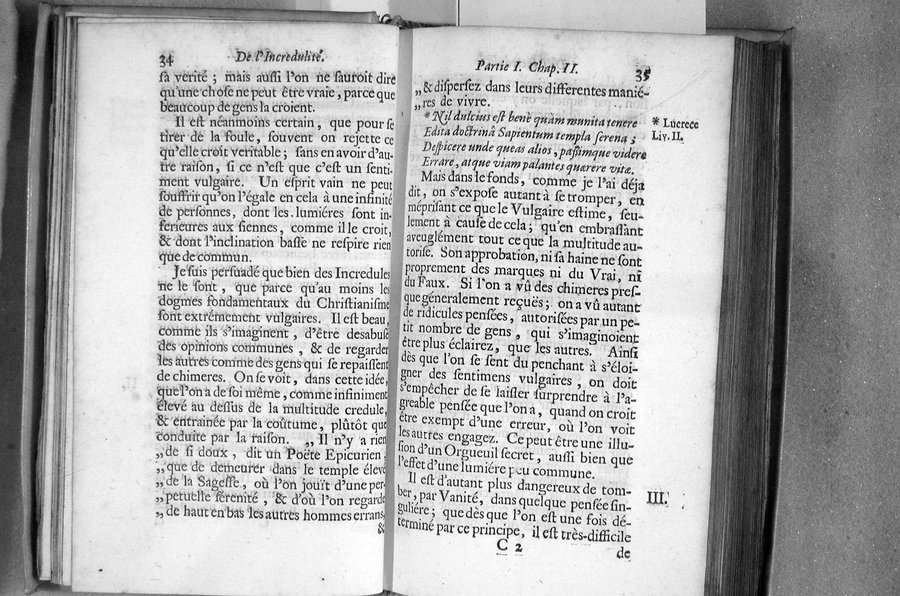 34 De l'Incredulité.
sa verité ; mais aussi l'on ne sauroit dire
qu'une chose ne peut être vraie, parce que
beaucoup de gens la croient.
Il est néanmoins certain, que pour se
tirer de la foule, souvent on rejette ce
qu'elle croit veritable ; sans en avoir d'au-
tre raison, si ce n'est que c'est un senti-
ment vulgaire. Un esprit vain ne peut
souffrir qu'on l'égale en cela à une infinité
de personnes, dont les lumiéres sont in-
ferieures aux siennes, comme il le croit,
& dont l'inclination basse ne respire rien
que de commun.
Je suis persuadé que bien des Incredules
ne le sont, que parce qu'au moins les
dogmes fondamentaux du Christianisme
sont extrémement vulgaires. Il est beau,
comme ils s'imaginent, d'être desabusé
des opinions communes, & de regarder
les autres comme des gens qui se repaissent
de chimeres. On se voit, dans cette idée,
que l'on a de soi même, comme infiniment
élevé au dessus de la multitude credule,
& entrainée par la coûtume, plûtôt que
conduite par la raison. „ Il n'y a rien
„ de si doux, dit un Poëte Epicurien ;
„ que de demeurer dans le temple élevé
„ de la Sagesse, où l'on jouït d'une per-
„ petuelle sérenité, & d'où l'on regarde
„ de haut en bas les autres hommes errans,
&
Partie I. Chap. II. 35
„ & dispersez dans leurs differentes manié-
„ res de vivre.
* Nil dulcius est benè quàm munita tenere
Edita doctrinâ Sapientum templa serena ;
Despicere unde queas alios, passimque videre
Errare, atque viam palantes quærere vitæ.
* Lucrece
Liv. II.
Mais dans le fonds, comme je l'ai déja
dit, on s'expose autant à se tromper, en
méprisant ce que le Vulgaire estime, seu-
lement à cause de cela ; qu'en embrassant
aveuglément tout ce que la multitude au-
torise. Son approbation, ni sa haine ne sont
proprement des marques ni du Vrai, ni
du Faux. Si l'on a vû des chimeres pres-
que géneralement reçuës ; on a vû autant
de ridicules pensées, autorisées par un pe-
tit nombre de gens, qui s'imaginoient
être plus éclairez, que les autres. Ainsi
dès que l'on se sent du penchant à s'éloi-
gner des sentimens vulgaires, on doit
s'empêcher de se laisser surprendre à l'a-
greable pensée que l'on a, quand on croit
être exempt d'une erreur, où l'on voit
les autres engagez. Ce peut être une illu-
sion d'un Orgueuil secret, aussi bien que
l'effet d'une lumiére peu commune.
III.
Il est d'autant plus dangereux de tom-
ber, par Vanité, dans quelque pensée sin-
guliére ; que dès que l'on est une fois dé-
terminé par ce principe, il est très-difficile
C 2 de